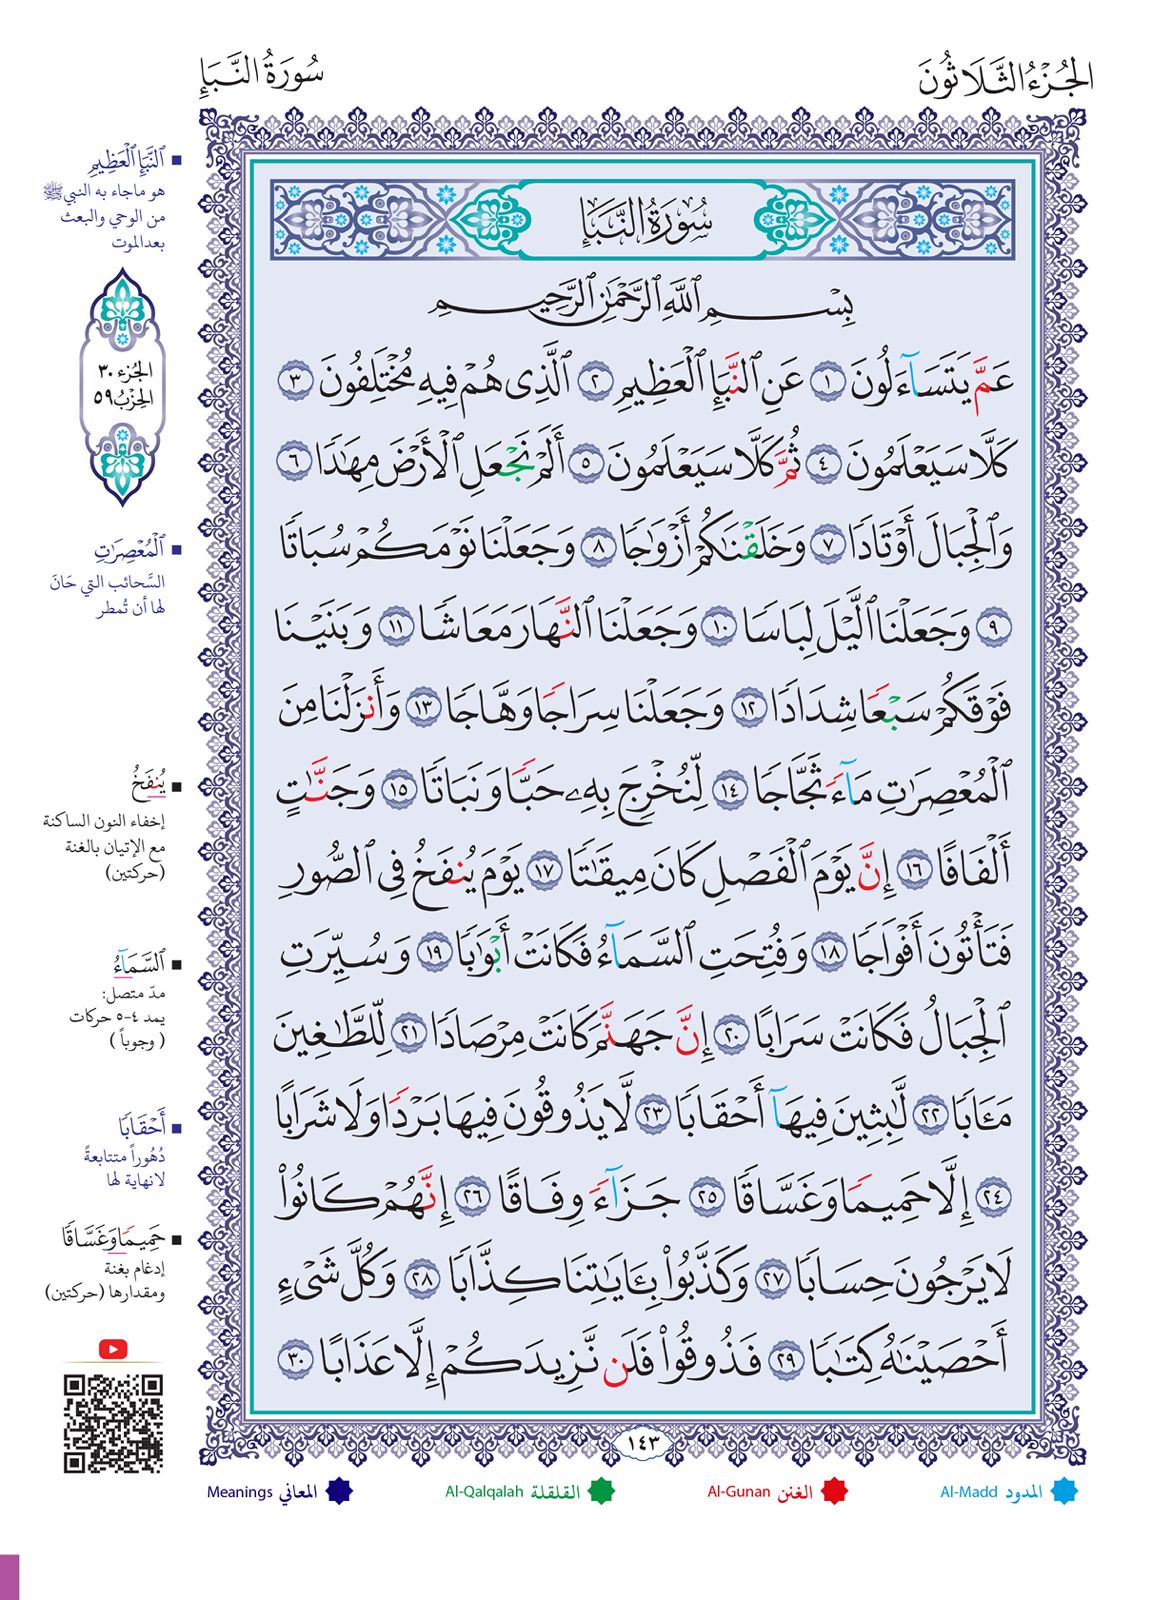 الجُزْءُ الثَّلَاثُونَ
سُورَةُ النَّبَإِ
سُورَةُ النَّبَإِ
بِسْمِ ٱللَّهِ ٱلرَّحْمَٰنِ ٱلرَّحِيمِ
عَمَّ يَتَسَآءَلُونَ ١ عَنِ ٱلنَّبَإِ ٱلْعَظِيمِ ٢ ٱلَّذِى هُمْ فِيهِ مُخْتَلِفُونَ ٣
كَلَّا سَيَعْلَمُونَ ٤ ثُمَّ كَلَّا سَيَعْلَمُونَ ٥ أَلَمْ نَجْعَلِ ٱلْأَرْضَ مِهَٰدًا ٦
وَٱلْجِبَالَ أَوْتَادًا ٧ وَخَلَقْنَٰكُمْ أَزْوَٰجًا ٨ وَجَعَلْنَا نَوْمَكُمْ سُبَاتًا
٩ وَجَعَلْنَا ٱلَّيْلَ لِبَاسًا ١٠ وَجَعَلْنَا ٱلنَّهَارَ مَعَاشًا ١١ وَبَنَيْنَا
فَوْقَكُمْ سَبْعًا شِدَادًا ١٢ وَجَعَلْنَا سِرَاجًا وَهَّاجًا ١٣ وَأَنزَلْنَا مِنَ
ٱلْمُعْصِرَٰتِ مَآءً ثَجَّاجًا ١٤ لِّنُخْرِجَ بِهِۦ حَبًّا وَنَبَاتًا ١٥ وَجَنَّٰتٍ
أَلْفَافًا ١٦ إِنَّ يَوْمَ ٱلْفَصْلِ كَانَ مِيقَٰتًا ١٧ يَوْمَ يُنفَخُ فِى ٱلصُّورِ
فَتَأْتُونَ أَفْوَاجًا ١٨ وَفُتِحَتِ ٱلسَّمَآءُ فَكَانَتْ أَبْوَٰبًا ١٩ وَسُيِّرَتِ
ٱلْجِبَالُ فَكَانَتْ سَرَابًا ٢٠ إِنَّ جَهَنَّمَ كَانَتْ مِرْصَادًا ٢١ لِّلطَّٰغِينَ
مَـَٔابًا ٢٢ لَّٰبِثِينَ فِيهَآ أَحْقَابًا ٢٣ لَّا يَذُوقُونَ فِيهَا بَرْدًا وَلَا شَرَابًا
٢٤ إِلَّا حَمِيمًا وَغَسَّاقًا ٢٥ جَزَآءً وِفَاقًا ٢٦ إِنَّهُمْ كَانُوا۟
لَا يَرْجُونَ حِسَابًا ٢٧ وَكَذَّبُوا۟ بِـَٔايَٰتِنَا كِذَّابًا ٢٨ وَكُلَّ شَىْءٍ
أَحْصَيْنَٰهُ كِتَٰبًا ٢٩ فَذُوقُوا۟ فَلَن نَّزِيدَكُمْ إِلَّا عَذَابًا ٣٠
١٤٣
ٱلنَّبَإِ ٱلْعَظِيمِ
هو ماجاء به النبي ﷺ
من الوحي والبعث
بعدالموت
الجُزء ٣٠
الحِزبُ ٥٩
ٱلْمُعْصِرَٰتِ
السَّحائب التي حَانَ
لها أن تُمطر
يُنفَخُ
إخفاء النون الساكنة
مع الإتيان بالغنة
(حركتين)
ٱلسَّمَآءُ
مدّ متصل:
يمد ٤-٥ حركات
( وجوباً )
أَحْقَابًا
دُهُوراً متتابعةً
لانهاية لها
حَمِيمًا وَغَسَّاقًا
إدغام بغنة
ومقدارها (حركتين)
المدود Al-Madd
الغنن Al-Gunan
القلقلة Al-Qalqalah
المعاني Meanings